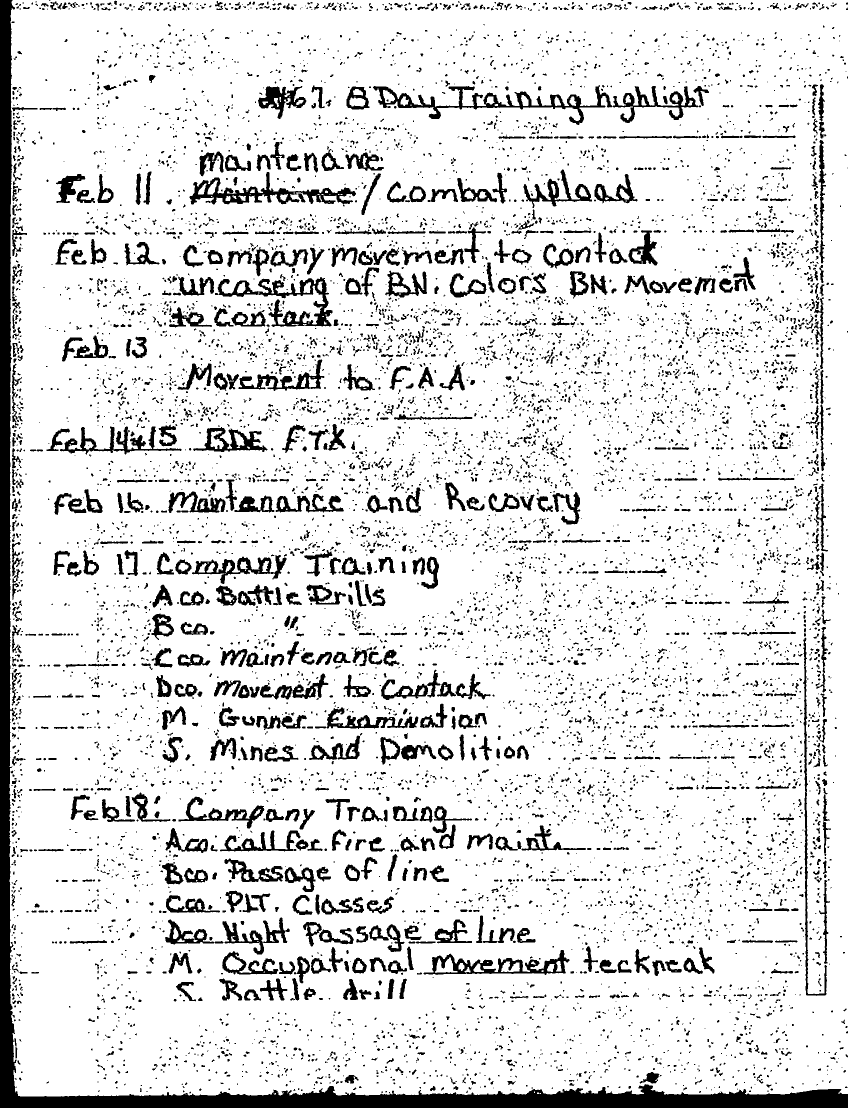 2/67. 8 Day Training highlight
maintenance
Feb 11. Maintainee / Combat upload
Feb 12. Company movement to Contack
uncaseing of BN. Colors BN. Movement
to Contack.
Feb 13
Movement to F.A.A.
Feb 14+15 BDE F.T.X.
Feb 16. Maintenance and Recovery
Feb 17. Company Training
A co. Battle Drills
B co. "
C co. Maintenance
D co. Movement to Contack
M. Gunner Examination
S. Mines and Demolition
Feb 18: Company Training
A co. Call for fire and maint.
B co. Passage of line
C co. PLT. Classes
D co. Night Passage of line
M. Occupational movement teckneak
S. Battle drill